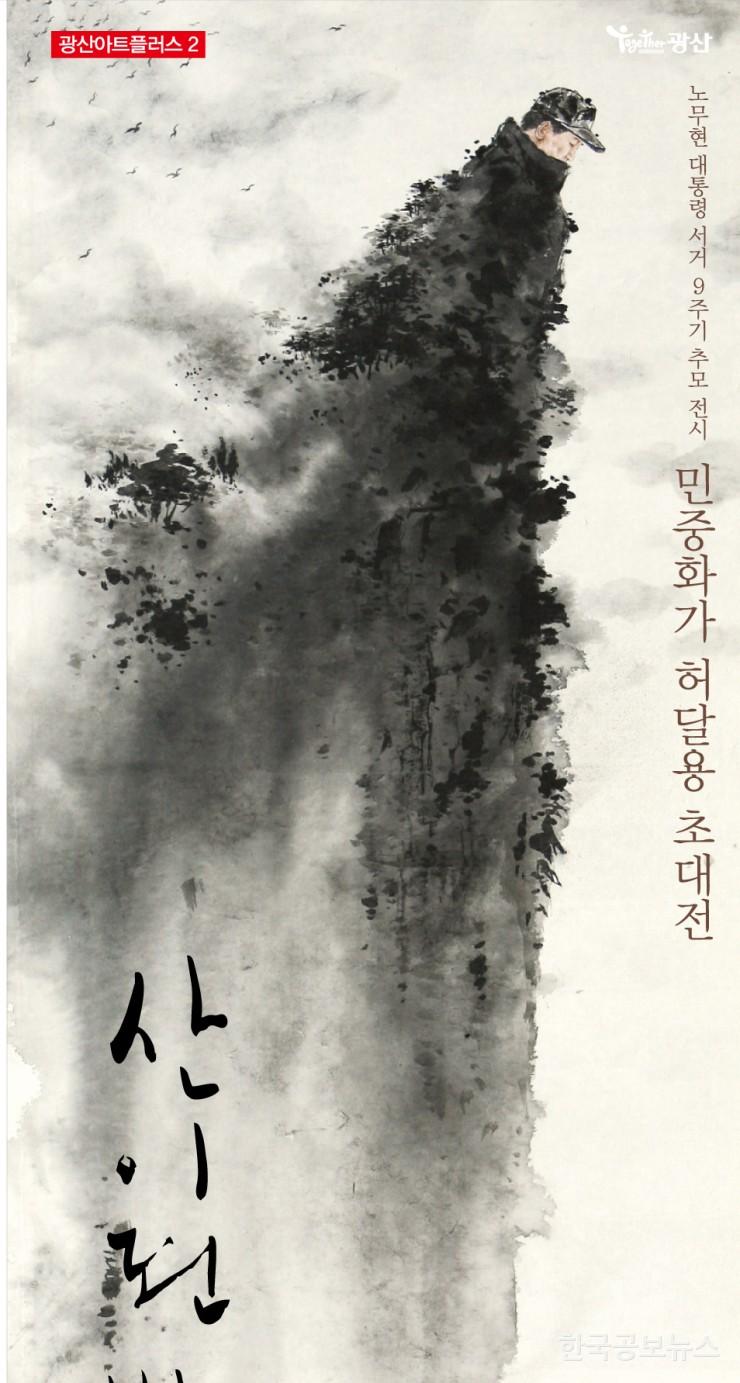 광산아트플러스 2
Together 광산
노무현 대통령 서거 9주기 추모 전시
민중화가 허달용 초대전
산이 된
한국공보뉴스